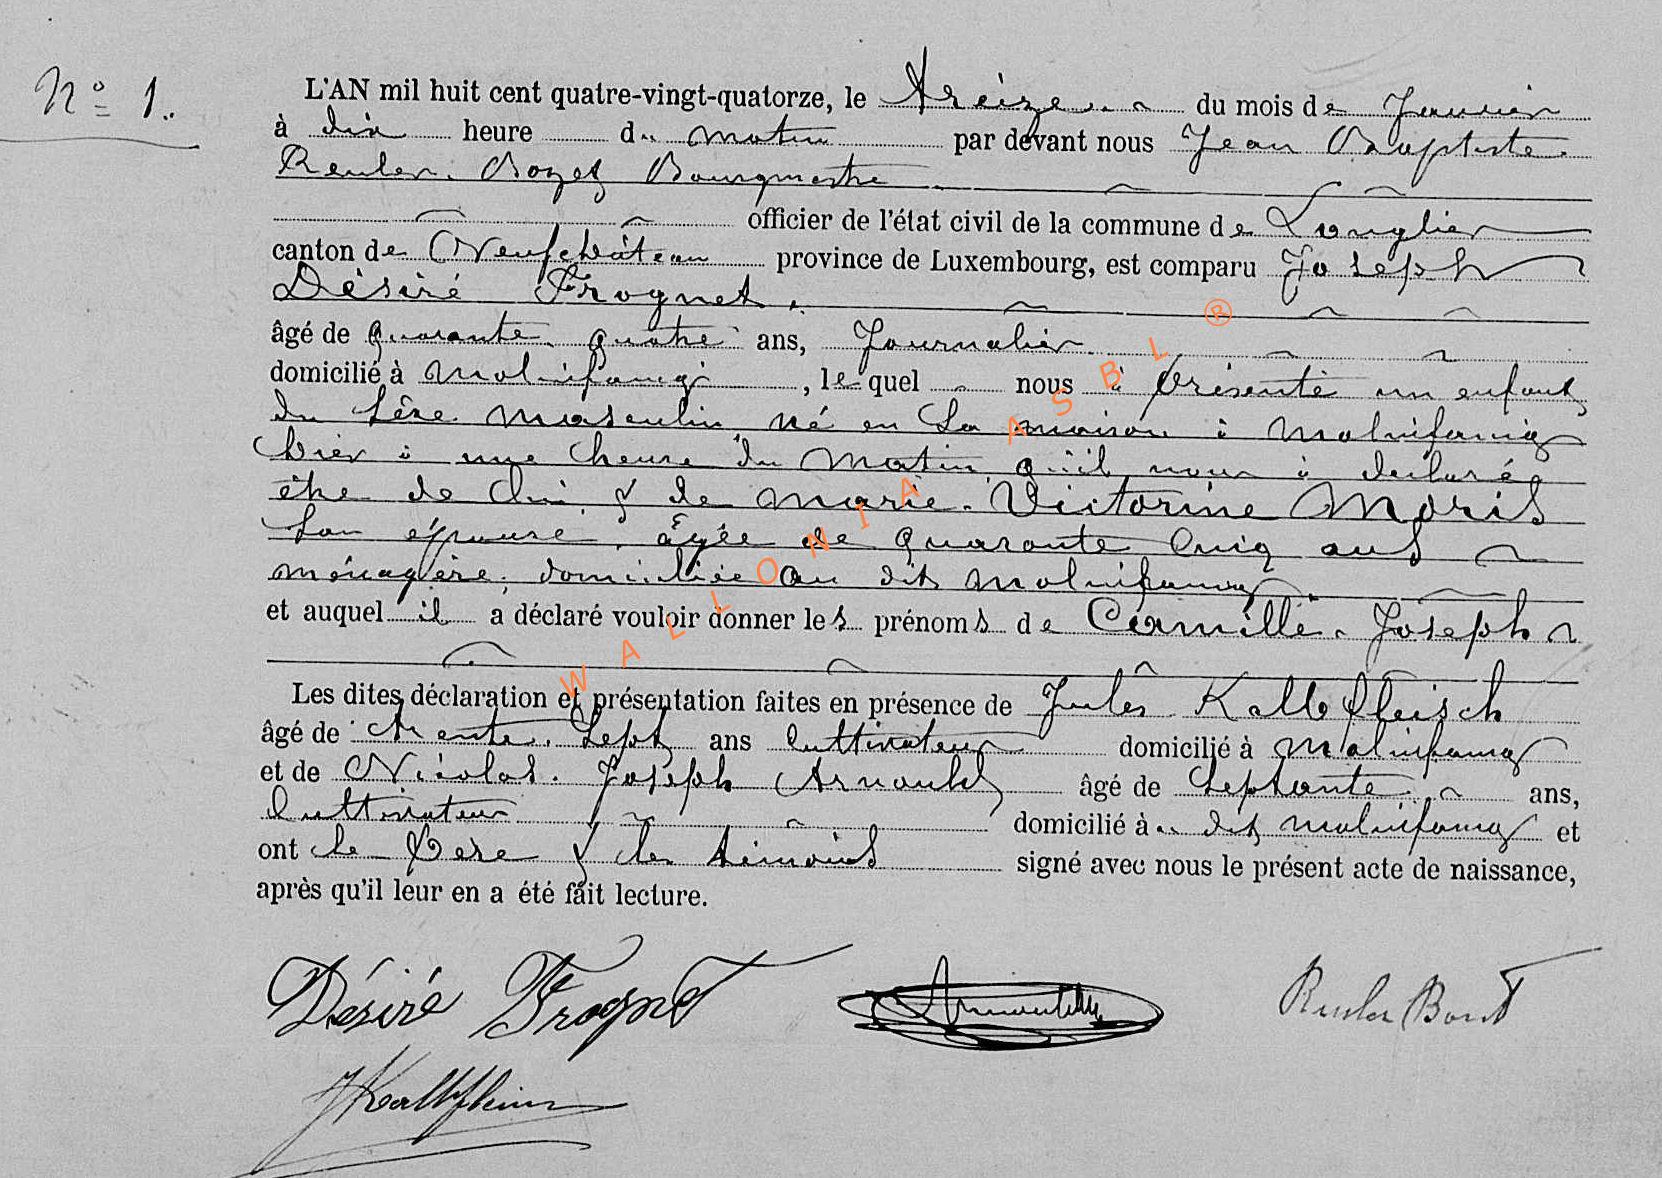 N° 1.
L'AN mil huit cent quatre-vingt-quatorze, le treize du mois de Janvier
à dix heure du matin par devant nous Jean Baptiste
Reuler. Bourgmestre
officier de l'état civil de la commune de Longlier
canton de Neufchâteau province de Luxembourg, est comparu Joseph
Désiré Frognet,
âgé de quarante quatre ans, Journalier
domicilié à molinfaing, lequel nous à présenté un enfant
du sexe masculin né en sa maison à molinfaing
hier à une heure du matin qu'il nous à declaré
être de lui & de marie. Victorine Moris
son épouse, âgée de quarante cinq ans
ménagère, domiciliée au dit molinfaing
et auquel il a déclaré vouloir donner les prénoms de Camille. Joseph
Les dites déclaration et présentation faites en présence de Jules Kalbfleisch
âgé de trente. sept ans cultivateur domicilié à molinfaing
et de Nicolas. Joseph Arnould âgé de septante ans,
cultivateur domicilié à dit molinfaing et
ont le Père & les témoins signé avec nous le présent acte de naissance,
après qu'il leur en a été fait lecture.
Désiré Frognet Arnould
JKalbfleisch
WALLONIA ASBL ®